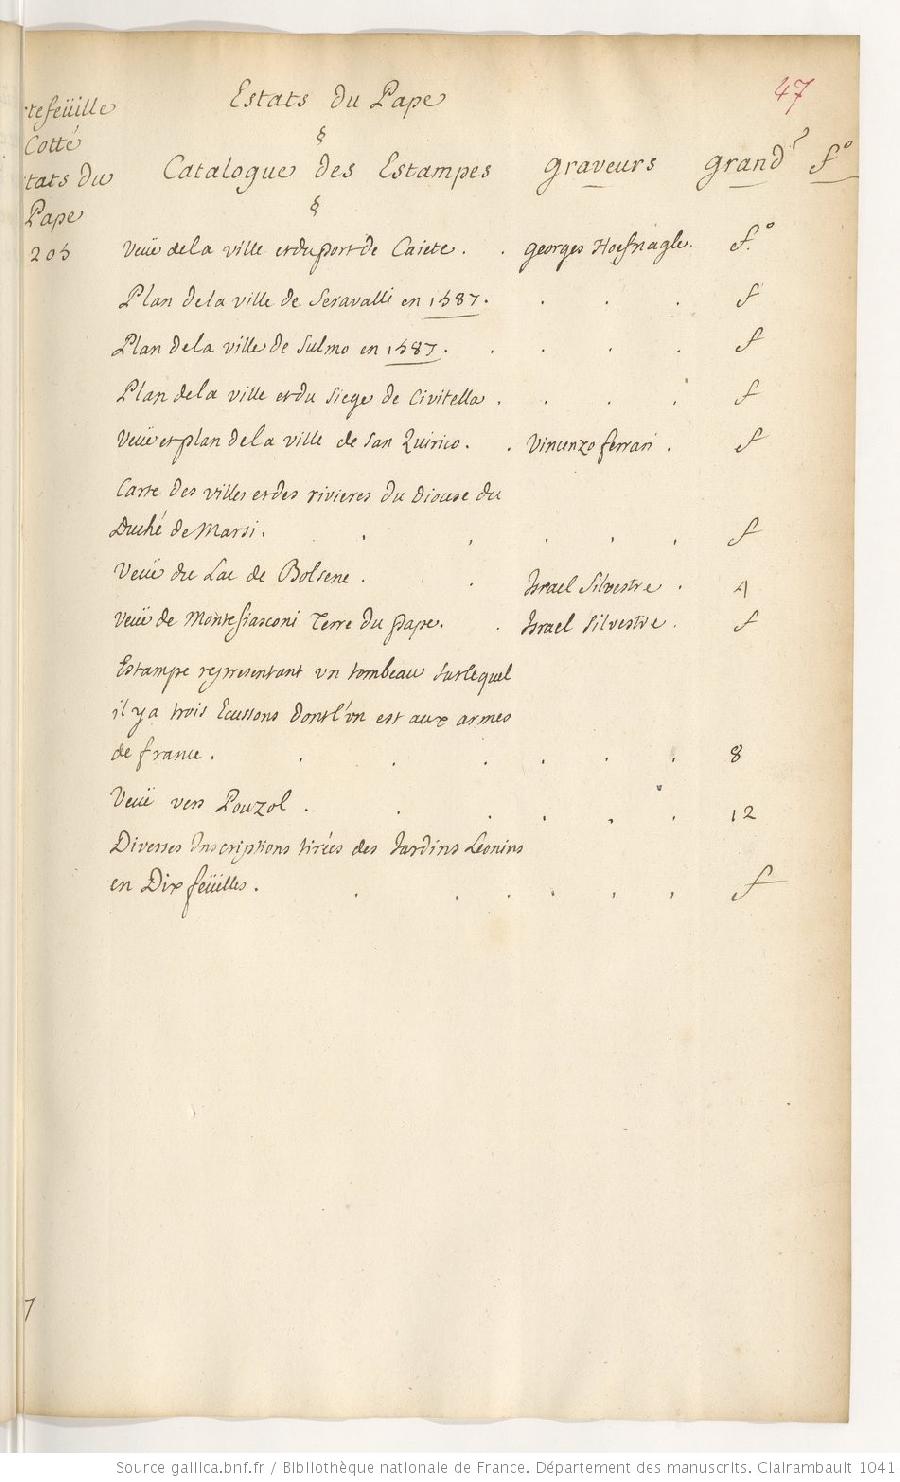 47
Estats du Pape
§
tefeüille
Cotté
tats du
Pape
203
Catalogue des Estampes graveurs grandr fo
§
Veüe dela ville et du port de Caiete. . georges Hoefnagle. f.o
Plan dela ville de Seravalli en 1587. . . . f
Plan dela ville de Sulmo en 1587. . . . . f
Plan dela ville et du siege de Civitella . . . . f
Veüe et plan dela ville de San Quirico. . Vincenzo ferrari . f
Carte des villes et des rivieres du Diocese du
Duché de Marsi. . . . . . f
Veüe du Lac de Bolsene . . Israel Silvestre . 4
Veüe de Montefiasconi Terre du pape. . Israel Silvestre . f
Estampe representant un tombeau sur lequel
il y a trois Ecussons dont l'un est aux armes
de france . . . . . . . 8
Veüe vers Pouzol . . . . . . 12
Diverses Inscriptions tirées des Jardins Leonins
en Dix feüilles . . . . . . . f
7
Source gallica.bnf.fr / Bibliothèque nationale de France. Département des manuscrits. Clairambault 1041